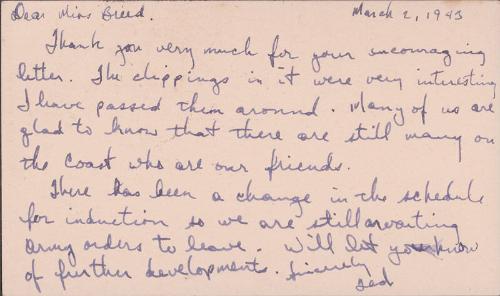 Dear Miss Breed. March 2, 1943
Thank you very much for your encouraging
letter. The clippings in it were very interesting
I have passed them around. Many of us are
glad to know that there are still many on
the Coast who are our friends.
There has been a change in the schedule
for induction so we are still awaiting
Army orders to leave. Will let you know
of further developments. Sincerely
Ted